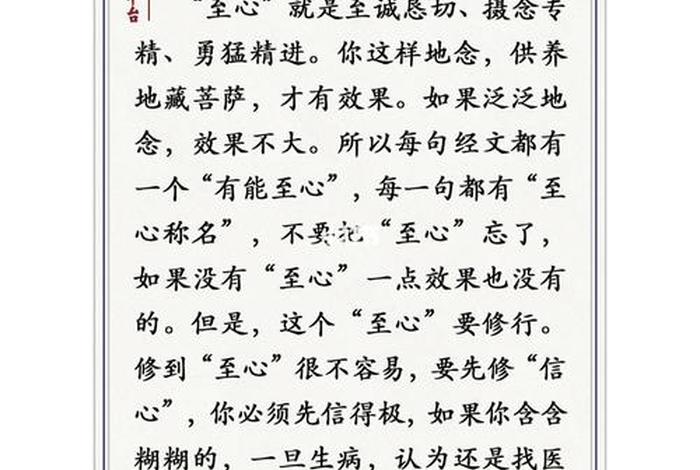 台
“至心”就是至诚恳切、摄念专
精、勇猛精进。你这样地念，供养
地藏菩萨，才有效果。如果泛泛地
念，效果不大。所以每句经文都有
一个“有能至心”，每一句都有“至
心称名”，不要把“至心”忘了，
如果没有“至心”一点效果也没有
的。但是，这个“至心”要修行。
修到“至心”很不容易，要先修“信
心”，你必须先信得极，如果你含含
糊糊的，一旦生病，认为还是找医